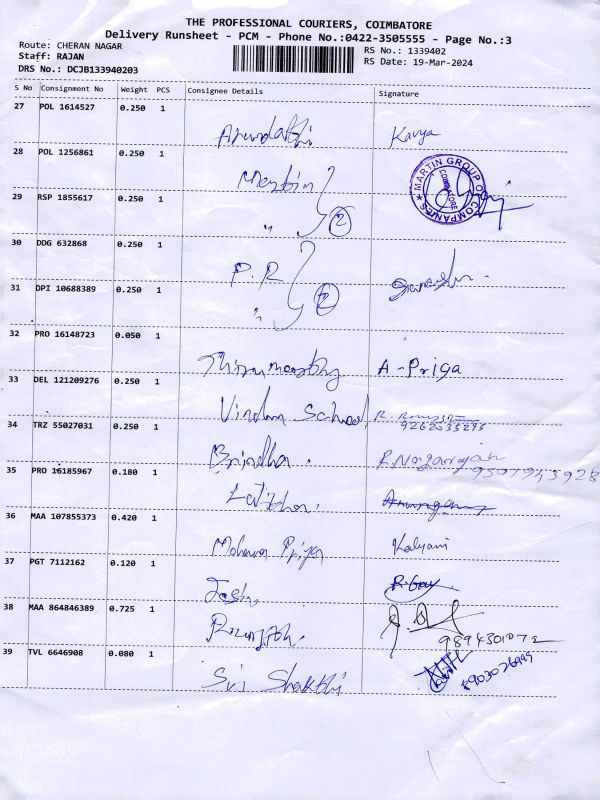 THE PROFESSIONAL COURIERS, COIMBATORE
Delivery Runsheet - PCM - Phone No.:0422-3505555 - Page No.:3
Route: CHERAN NAGAR
RS No.: 1339402
Staff: RAJAN
RS Date: 19-Mar-2024
DRS No.: DCJB133940203
S No Consignment No Weight PCS Consignee Details Signature
27 POL 1614527 0.250 1
Arundathi Kavya
28 POL 1256861 0.250 1
Martin
MARTIN GROUP OF COMPANIES
COIMBATORE
29 RSP 1855617 0.250 1
" 2
30 DDG 632868 0.250 1
P.R
31 DPI 10688389 0.250 1
" 2
32 PRO 16148723 0.050 1
Thirumoorthy A-Priga
33 DEL 121209276 0.250 1
School
34 TRZ 55027031 0.250 1
Brindha.
35 PRO 16185967 0.180 1
36 MAA 107855373 0.420 1
Mohana Priya Kalyani
37 PGT 7112162 0.120 1
38 MAA 864846389 0.725 1
39 TVL 6646908 0.080 1
Sri Shakthi